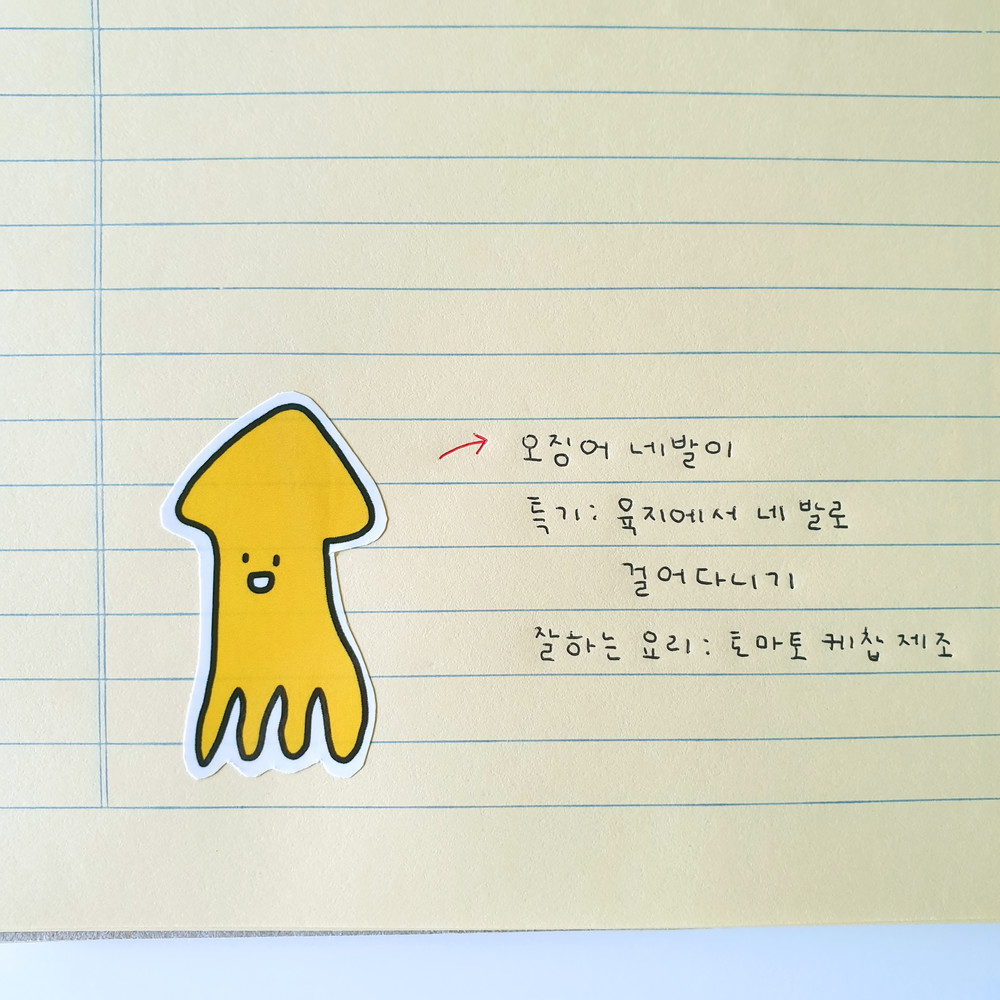 오징어 네발이
특기: 육지에서 네 발로
걸어다니기
잘하는 요리: 토마토 케찹 제조